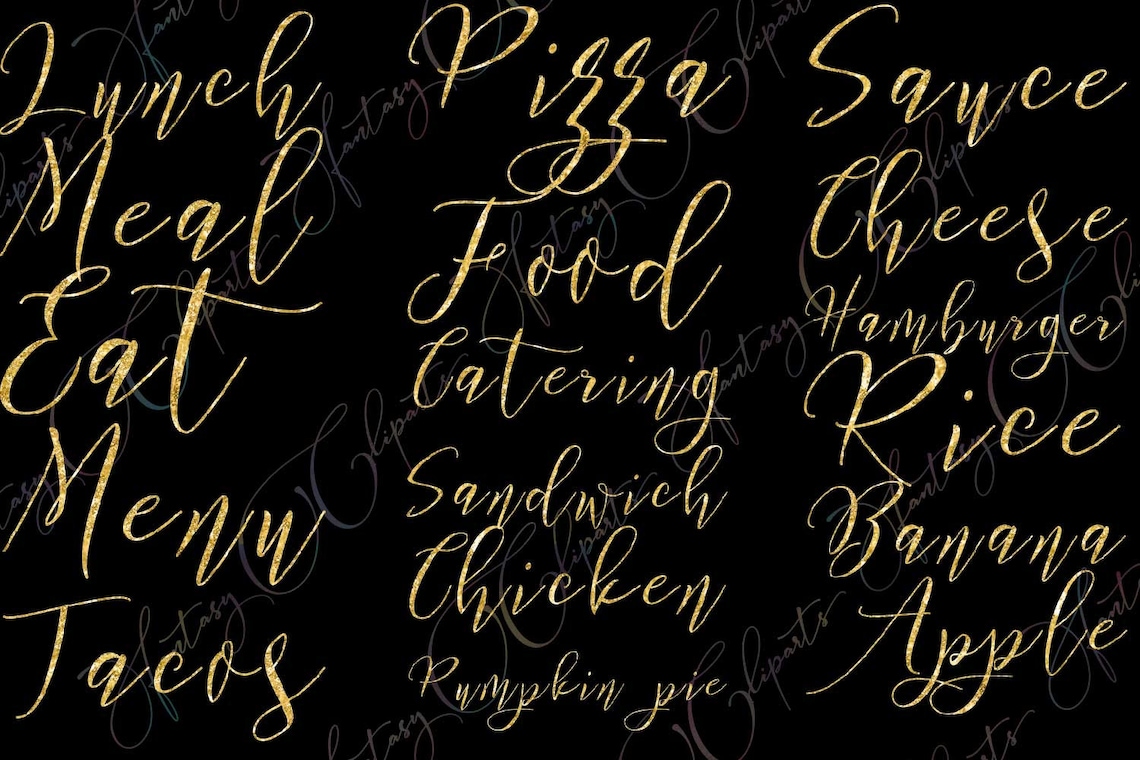 Lunch
Meal
Eat
Menu
Tacos
Pizza
Food
Catering
Sandwich
Chicken
Pumpkin pie
Sauce
Cheese
Hamburger
Rice
Banana
Apple
Fantasy Cliparts